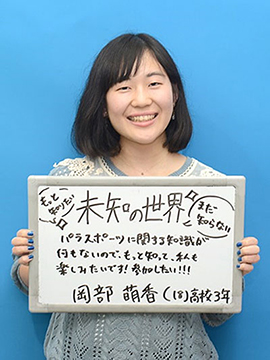 もっと
知りたい
未知の世界
まだ
知らない
パラスポーツに関する知識が
何もないので、もっと知って、私も
楽しみたいです!参加したい!!!
岡部 萌香 (18)高校3年